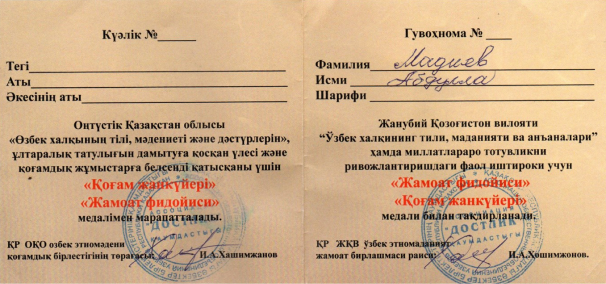 Куәлік №______
Тегі
Аты
Әкесінің аты
Оңтүстік Қазақстан облысы
«Өзбек халқының тілі, мәдениеті және дәстүрлерін»,
ұлтаралық татулығын дамытуға қосқан үлесі және
қоғамдық жұмыстарға белсенді қатысқаны үшін
«Қоғам жанкүйері»
«Жамоат фидойиси»
медалімен марапатталады.
ҚР ОҚО өзбек этномәдени
қоғамдық бірлестігінің төрағасы:
И.А.Хошимжанов
ДОСТЛИК
Гувоҳнома № ____
Фамилия Мадиев
Исми Абдулла
Шарифи
Жанубий Қозоғистон вилояти
“Ўзбек халқининг тили, маданияти ва анъаналари”
ҳамда миллатлараро тотувликни
ривожлантиришдаги фаол иштироки учун
«Жамоат фидойиси»
«Қоғам жанкүйері»
медали билан тақдирланади.
ҚР ЖҚВ ўзбек этномаданият
жамоат бирлашмаси раиси:
И.А.Хошимжонов.
ДОСТЛИК